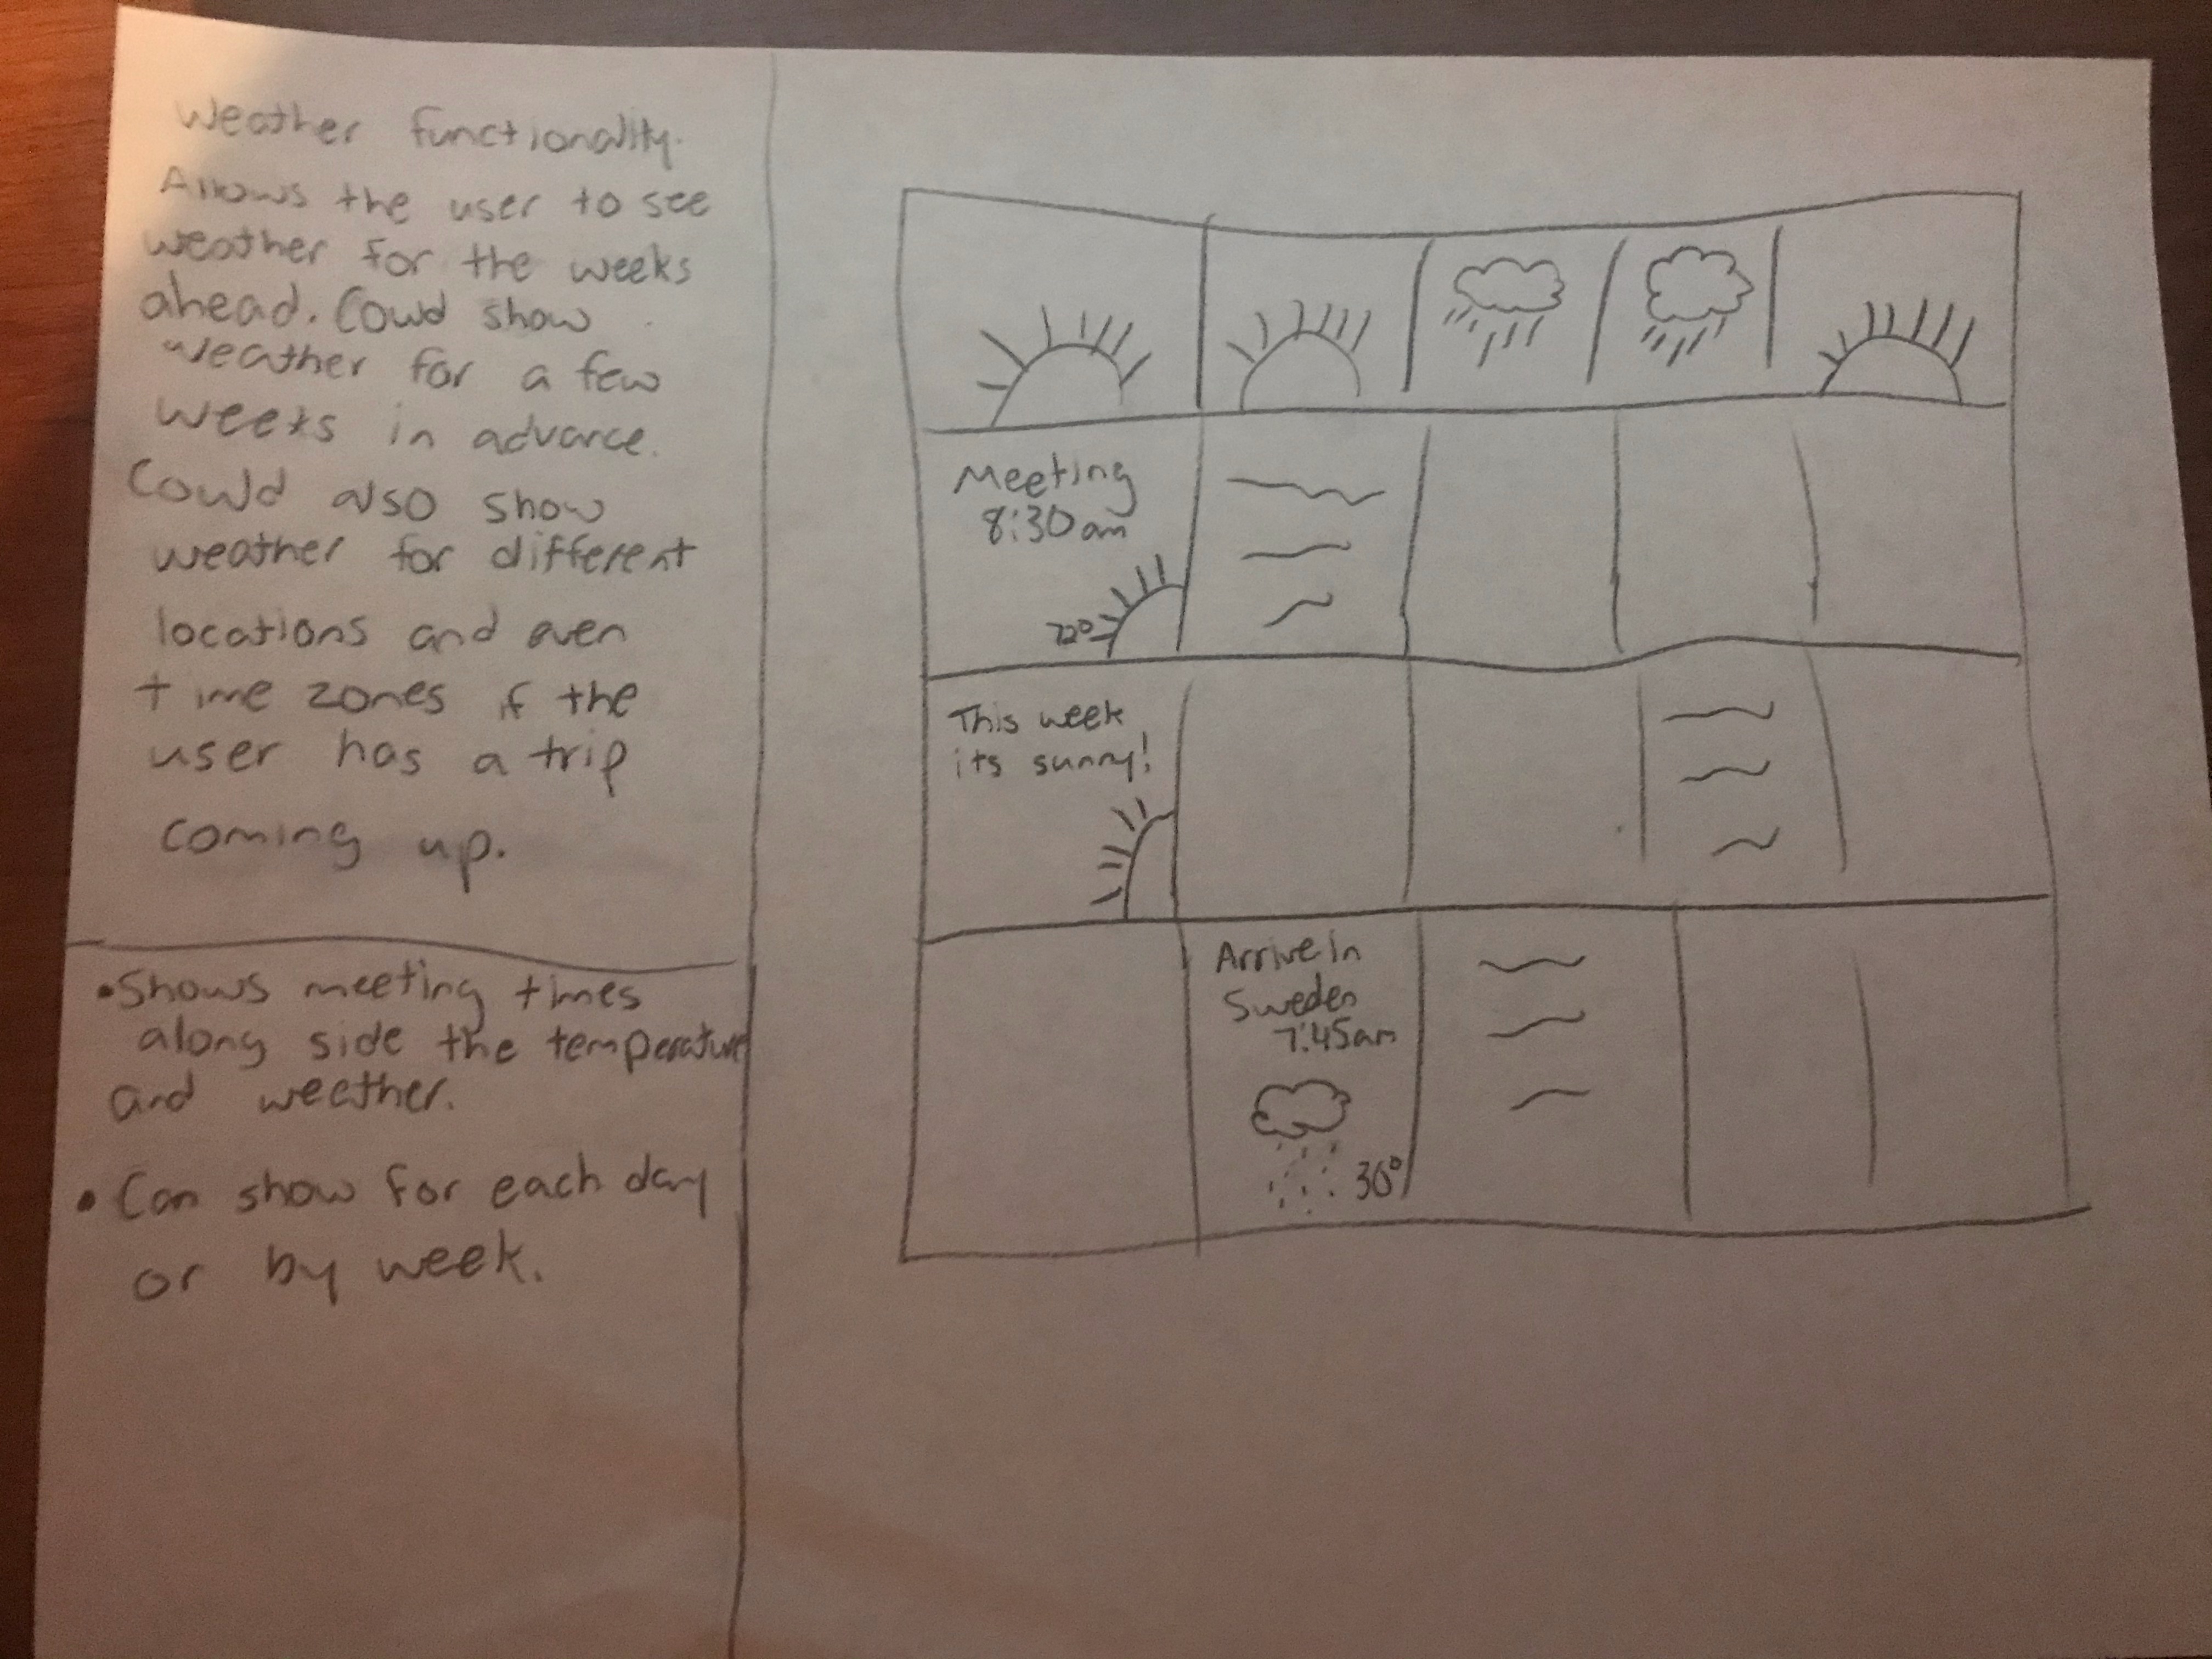 Weather functionality.
Allows the user to see
weather for the weeks
ahead. Coud show
weather for a few
weeks in advance.
Could also show
weather for different
locations and even
time zones if the
user has a trip
coming up.
• Shows meeting times
along side the temperature
and weather.
• Can show for each day
or by week.
Meeting
8:30am
72°
This week
its sunny!
Arrive in
Sweden
7:45am
36°